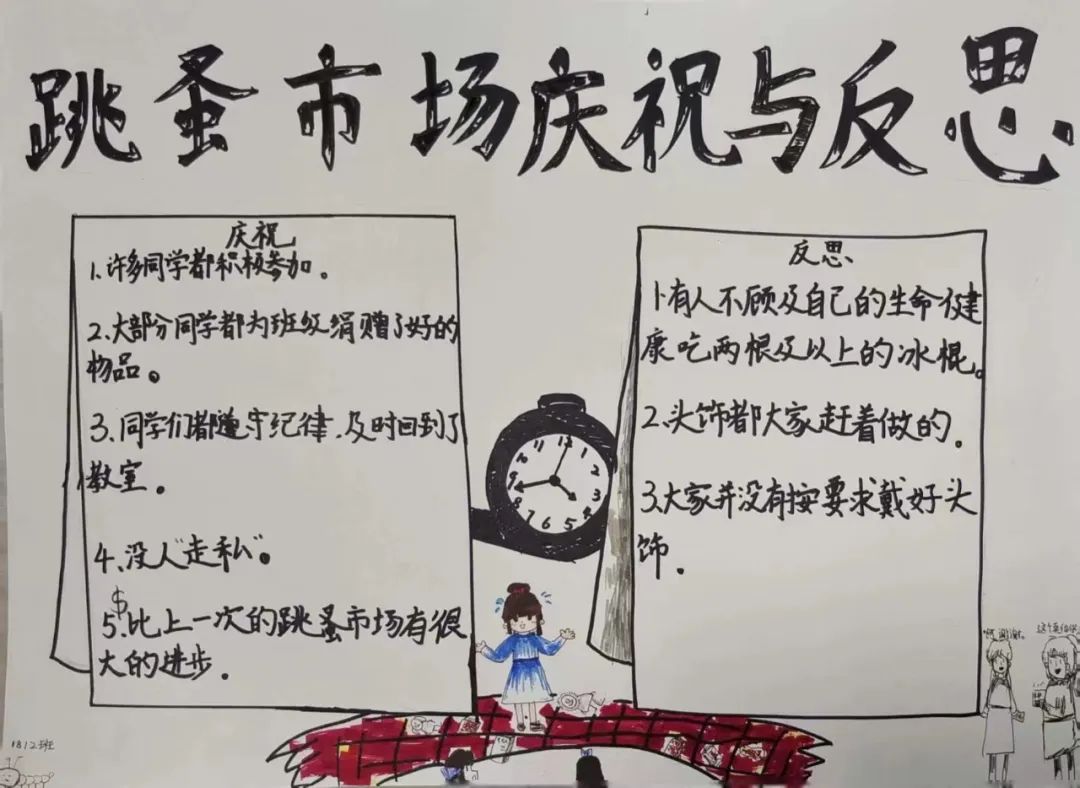 跳蚤市场庆祝与反思
庆祝
1.许多同学都积极参加。
2.大部分同学都为班级绢赠了好的
物品。
3.同学们都遵守纪律,及时回到了
教室。
4.没人“走私”。
$
5.比上一次的跳蚤市场有很
大的进步。
反思
1.有人不顾及自己的生命健
康吃两根及以上的冰棍。
2.头饰都大家赶着做的。
3.大家并没有按要求戴好头
饰。
11 12 1
10 2
9 3
8 4
7 6 5
谢谢。
这个卖给你
1812班